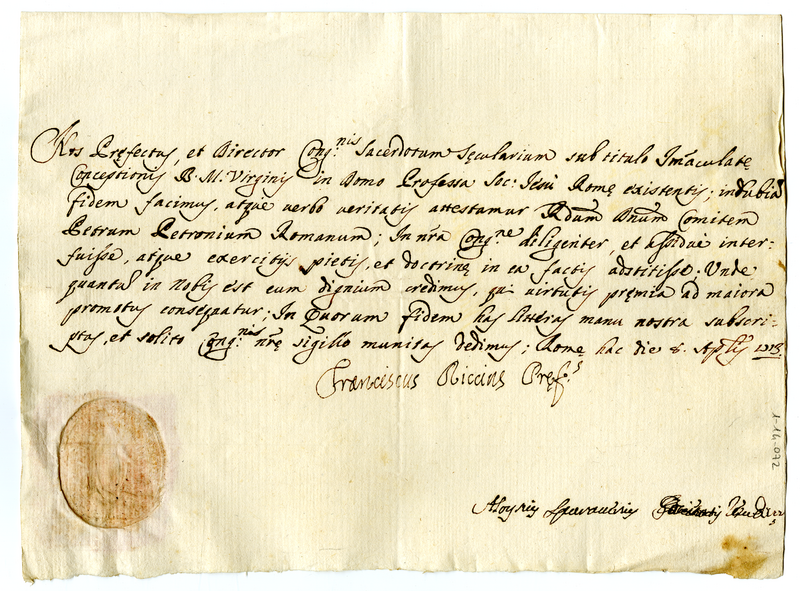 Nos Pręfectus, et Director Cong.nis Sacerdotum Sęcularium sub titulo Im̃aculatę
Conceptionis B. M. Virginis in Domo Professa Soc: Iesù Romę existentis; indubiã
fidem facimus, atque verbo veritatis attestamur Rdum Dnum Comitem
Petrum Petronium Romanum; In nr̃a Cong.ne diligenter, et assiduè inter-
fuisse, atque exercitijs pietis, et doctrinę in ea factis adstitisse: Unde
quantũ in nobis est eum dignium credimus, qui virtutis pręmia ad maiora
promotus consequatur; In Quorum fidem has litteras manu nostra subscri-
ptas, et solito Cong.nis nrę sigillo munitas dedimus; Romę hac die 8. Aplis 1713.
Franciscus Riccius Pręf.s
Aloysius
1-14-072